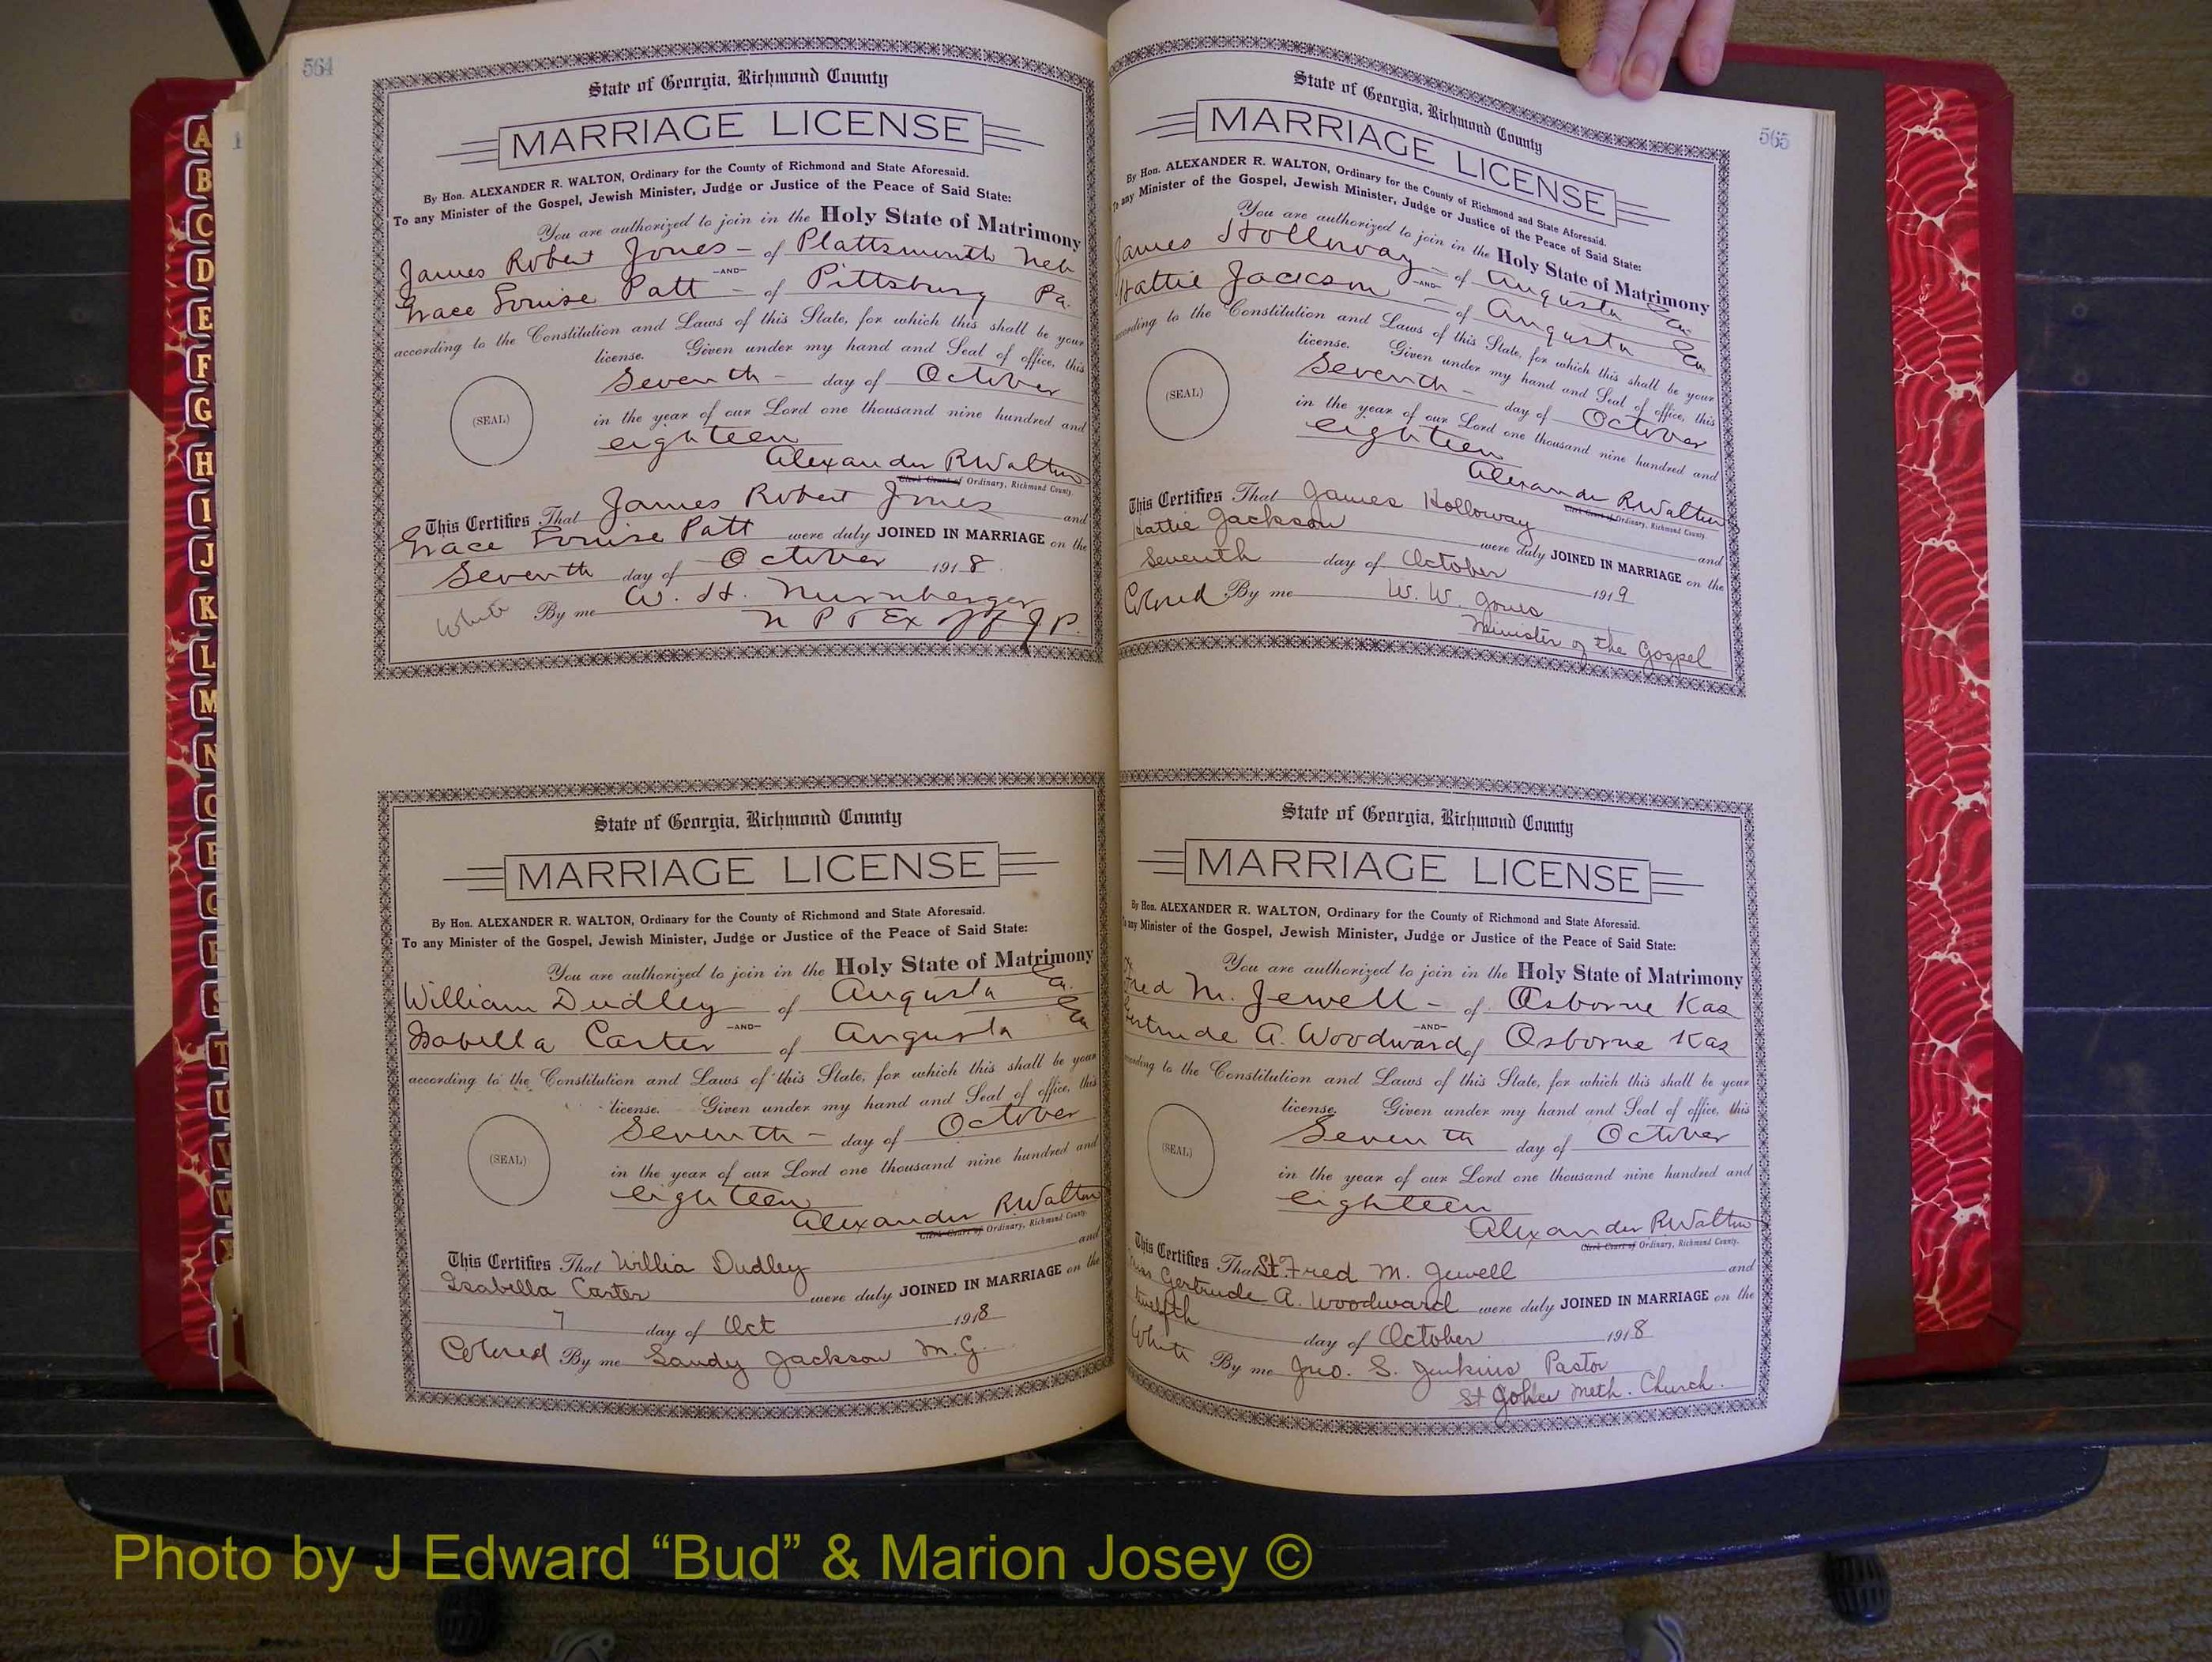 564
State of Georgia, Richmond County
MARRIAGE LICENSE
By Hon. ALEXANDER R. WALTON, Ordinary for the County of Richmond and State Aforesaid.
To any Minister of the Gospel, Jewish Minister, Judge or Justice of the Peace of Said State:
You are authorized to join in the Holy State of Matrimony
James Robert Jones - of Plattsmouth Neb
-AND-
Grace Louise Patt - of Pittsburg Pa.
according to the Constitution and Laws of this State, for which this shall be your
license. Given under my hand and Seal of office, this
Seventh - day of October
(SEAL)
in the year of our Lord one thousand nine hundred and
eighteen
Alexander R Walton
Clerk Court of Ordinary, Richmond County.
This Certifies That James Robert Jones and
Grace Louise Patt were duly JOINED IN MARRIAGE on the
Seventh day of October 1918.
White By me W. H. Nurnberger
N P & Ex Off J P.
State of Georgia, Richmond County
MARRIAGE LICENSE
By Hon. ALEXANDER R. WALTON, Ordinary for the County of Richmond and State Aforesaid.
To any Minister of the Gospel, Jewish Minister, Judge or Justice of the Peace of Said State:
You are authorized to join in the Holy State of Matrimony
William Dudley of Augusta Ga.
-AND-
Isabella Carter of Augusta Ga
according to the Constitution and Laws of this State, for which this shall be your
license. Given under my hand and Seal of office, this
Seventh - day of October
(SEAL)
in the year of our Lord one thousand nine hundred and
eighteen
Alexander R. Walton
Clerk Court of Ordinary, Richmond County.
This Certifies That Willia Dudley and
Isabella Carter were duly JOINED IN MARRIAGE on the
7 day of Oct 1918
Colored By me Sandy Jackson M.G.
565
State of Georgia, Richmond County
MARRIAGE LICENSE
By Hon. ALEXANDER R. WALTON, Ordinary for the County of Richmond and State Aforesaid.
To any Minister of the Gospel, Jewish Minister, Judge or Justice of the Peace of Said State:
You are authorized to join in the Holy State of Matrimony
James Holloway - of Augusta Ga.
-AND-
Hattie Jackson - of Augusta Ga.
according to the Constitution and Laws of this State, for which this shall be your
license. Given under my hand and Seal of office, this
Seventh - day of October
(SEAL)
in the year of our Lord one thousand nine hundred and
eighteen
Alexander R Walton
Clerk Court of Ordinary, Richmond County.
This Certifies That James Holloway and
Hattie Jackson were duly JOINED IN MARRIAGE on the
Seventh day of October 1919
Colored By me W. W. Jones
Minister of the Gospel
State of Georgia, Richmond County
MARRIAGE LICENSE
By Hon. ALEXANDER R. WALTON, Ordinary for the County of Richmond and State Aforesaid.
To any Minister of the Gospel, Jewish Minister, Judge or Justice of the Peace of Said State:
You are authorized to join in the Holy State of Matrimony
Fred M. Jewell - of Osborne Kas
-AND-
Gertrude A. Woodward of Osborne Kas
according to the Constitution and Laws of this State, for which this shall be your
license. Given under my hand and Seal of office, this
Seventh day of October
(SEAL)
in the year of our Lord one thousand nine hundred and
eighteen
Alexander R Walton
Clerk Court of Ordinary, Richmond County.
This Certifies That Lt. Fred M. Jewell and
Miss Gertrude A. Woodward were duly JOINED IN MARRIAGE on the
twelfth day of October 1918
White By me Jno. S. Jenkins Pastor
St Johns Meth. Church.
A
B
C
D
E
F
G
H
I
J
K
L
M
N
O
P
Q
R
S
T
U
V
W
Photo by J Edward “Bud” & Marion Josey ©